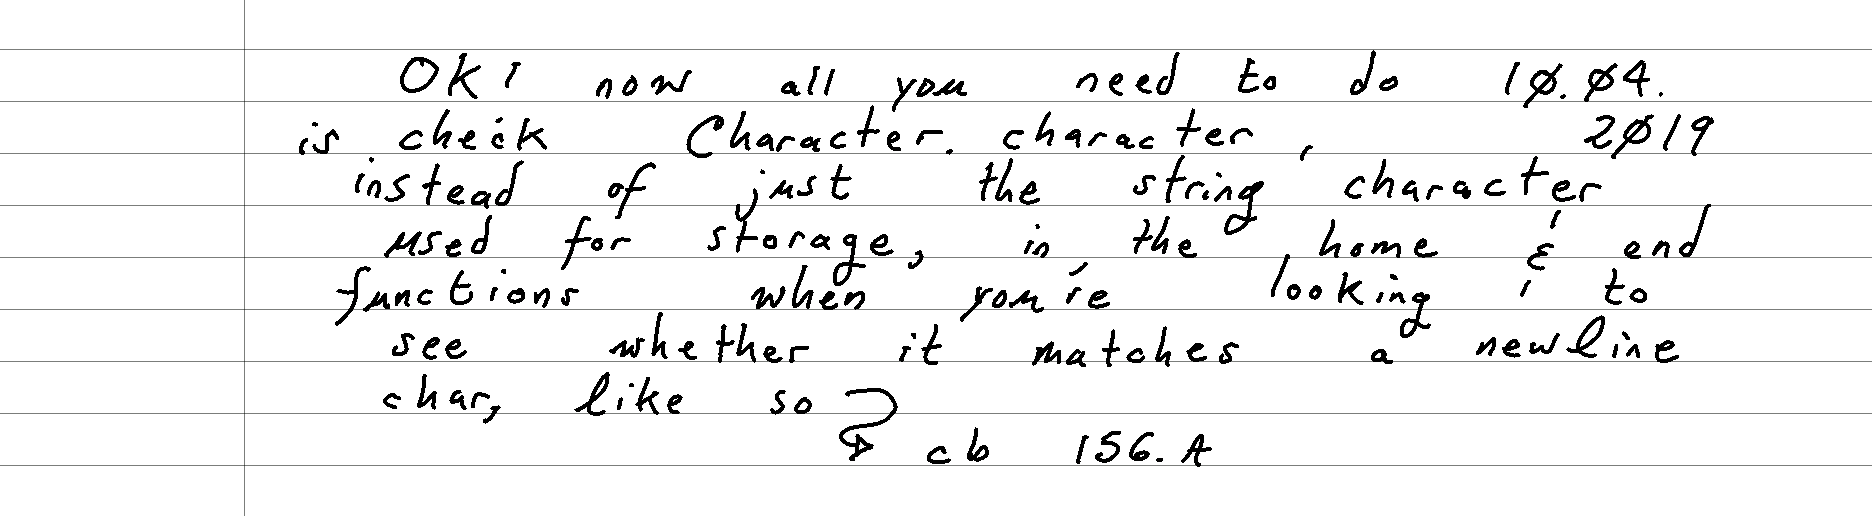 OK! now all you need to do 10.04.
is check Character.character, 2019
instead of just the string character
used for storage, in the home & end
functions when you're looking to
see whether it matches a newline
char, like so
cb 156.A